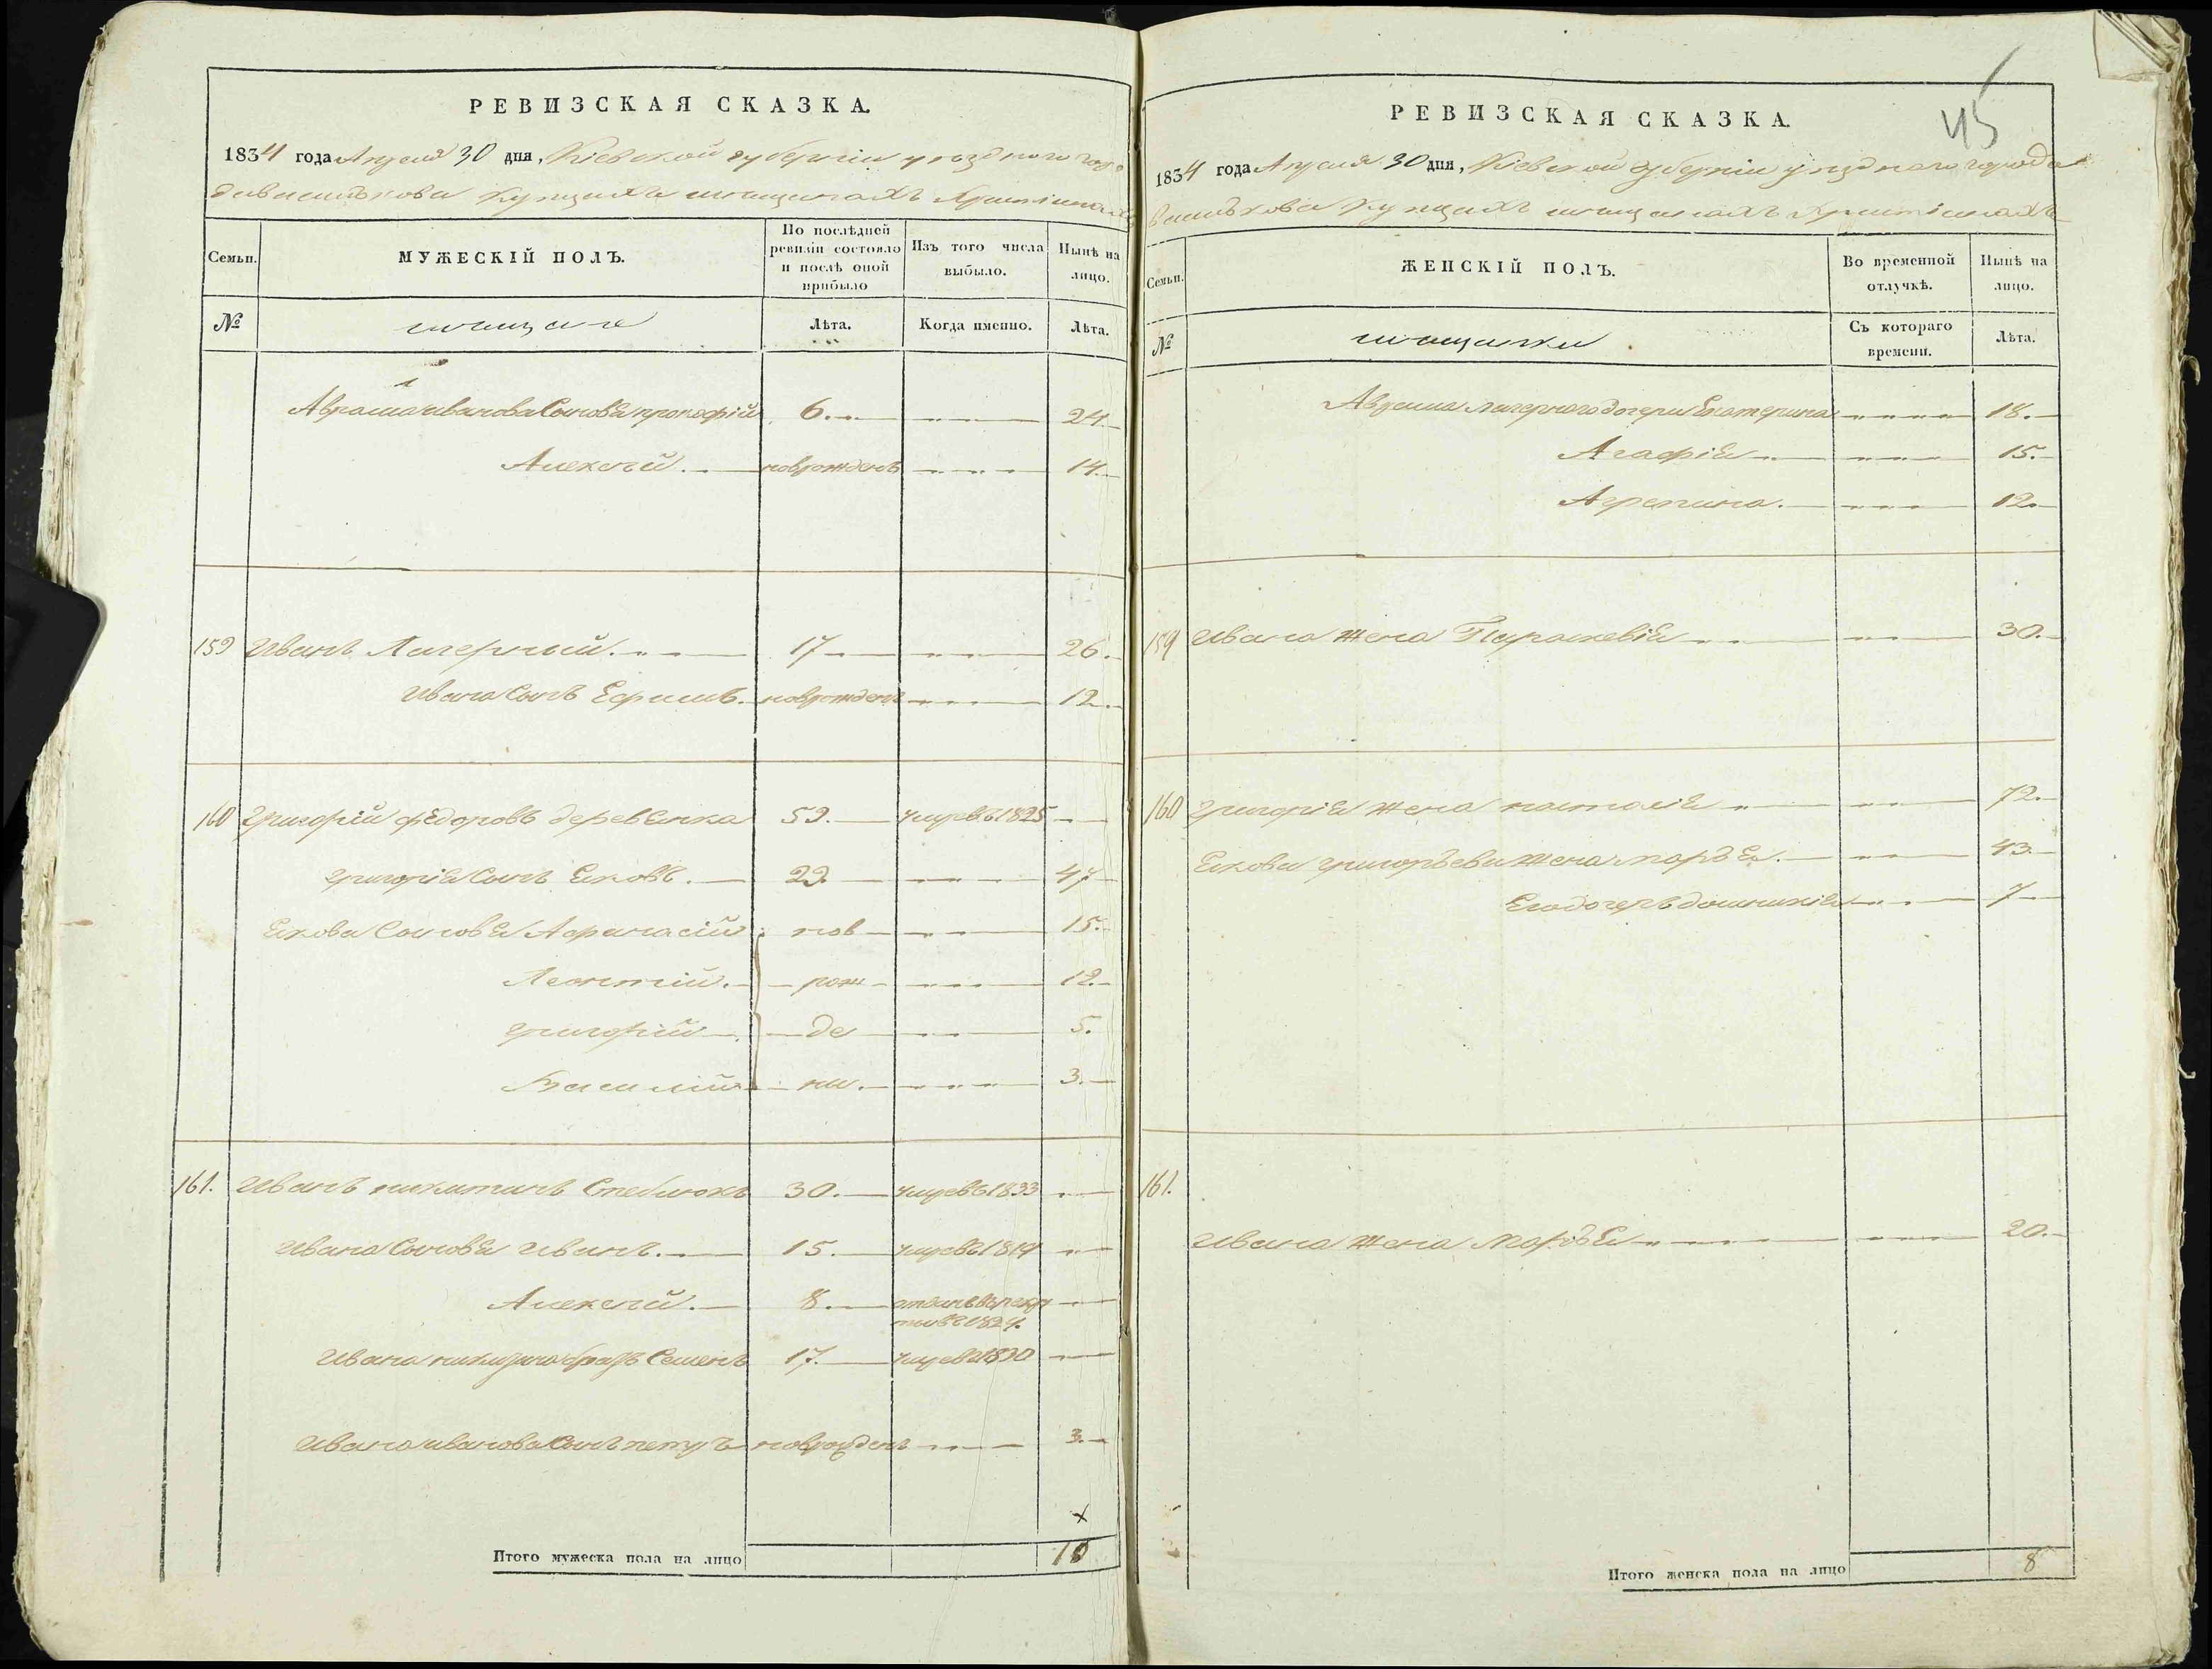 РЕВИЗСКАЯ СКАЗКА.
1834 года Апреля 30 дня, Кіевской губерніи уѣздного горо
да Василькова Купцахъ мещанахъ Христіянахъ
Семьи.
МУЖЕСКІЙ ПОЛЪ.
По послѣдней ревизіи состояло и послѣ оной прибыло
Изъ того числа выбыло.
Нынѣ на лицо.
№
мещане
Лѣта.
Когда именно.
Лѣта.
Абрама Иванова Сыновья прокофій 6. 24
Алексѣй. новрожденъ 14
159 Иванъ Лагерный. 17 26.
Ивана Сынъ Ефимъ. новрожденъ 12.
160 Григорій Федоровъ деревянка 59. умре въ 1825
Григорія Сынъ Яковъ. 29 47
Якова Сыновья Афанасій нов 15.
Леонтій. рож 12.
Григорій де 5.
Василій ни. 3.
161. Иванъ никитинъ Стеблюкъ 30. умре въ 1833
Ивана Сыновья Иванъ. 15. умре въ 1819
Алексѣй. 8. отданъ въ рекру
ты въ 1829.
Ивана никитина братъ Семенъ 17. умре въ 1830
Ивана иванова Сынъ петръ новрожденъ 3.
Итого мужеска пола на лицо 10
45
РЕВИЗСКАЯ СКАЗКА.
1834 года Апреля 30 дня, Кіевской губерніи уѣздного города
Василькова Купцахъ мещанахъ Христіянахъ
Семьи.
ЖЕНСКІЙ ПОЛЪ.
Во временной отлучкѣ.
Нынѣ на лицо.
№
мещанки
Съ котораго времени.
Лѣта.
Абрама Лагерного дочери Екатерина 18.
Агафія 15.
Агрепина. 12.
159 Ивана жена Параскевія 30.
160 Григорія жена настасія 72.
Якова Григорьева жена марья. 43
Его дочерь домникія 7
161.
Ивана жена Марья 20.
Итого женска пола на лицо 8